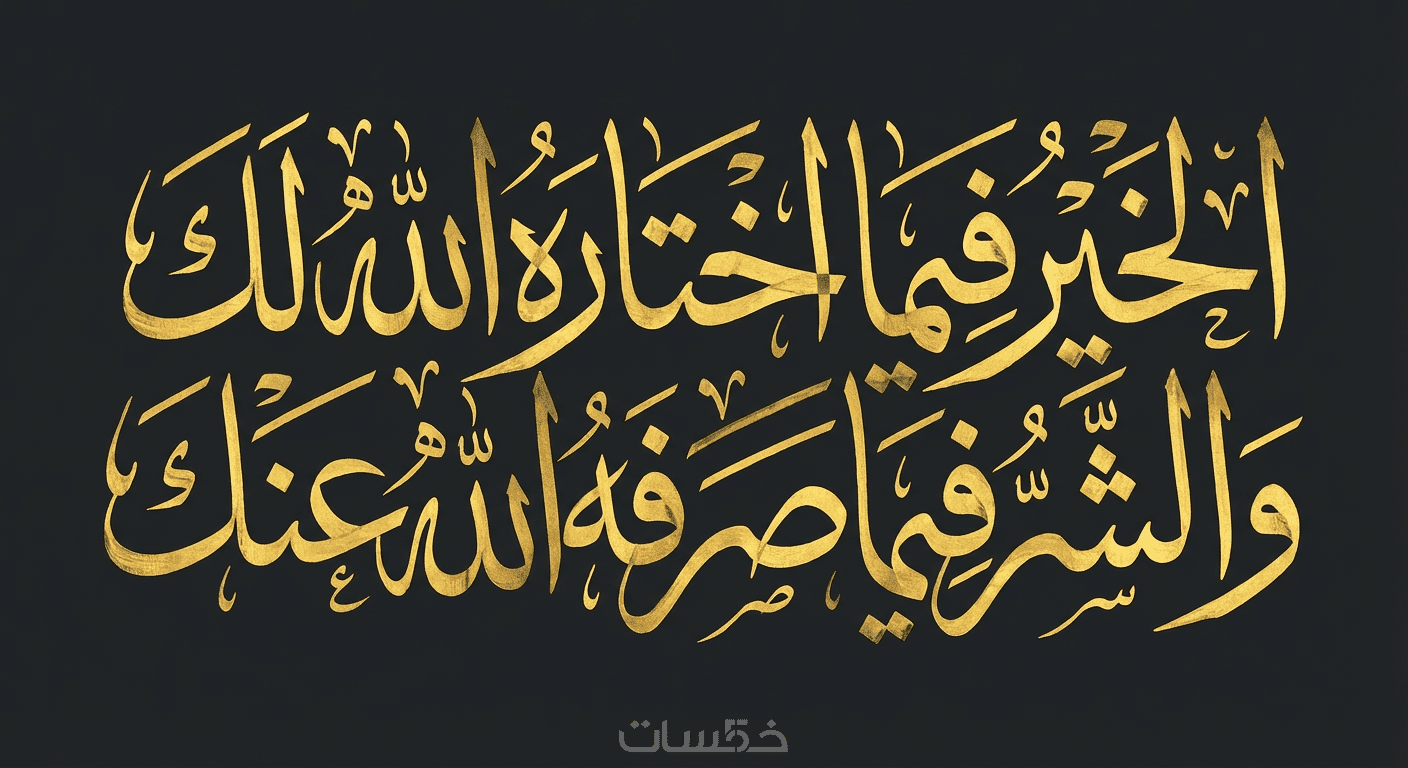 الخَيْرُ فِيمَا اخْتَارَهُ اللَّهُ لَكَ
وَالشَّرُّ فِيمَا صَرَفَهُ اللَّهُ عَنْكَ
خمسات